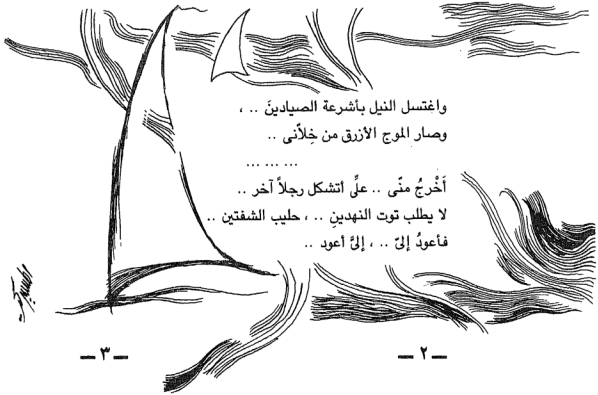 واغتسل النيل بأشرعة الصيادينَ .. ،
وصار الموج الأزرق من خِلاّنى ..
... ... ...
أَخْرجُ منّى .. علِّى أتشكل رجلاً آخر ..
لا يطلب توت النهدينِ .. ، حليب الشفتين ..
فأعودُ إلىّ .. ، إلىَّ أعود ..
ـ ٢ ـ
ـ ٣ ـ